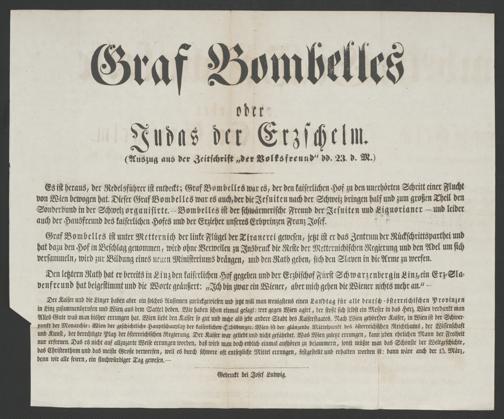 Graf Bombelles
oder
Judas der Erzschelm.
(Auszug aus der Zeitschrift „der Volksfreund“ dd. 23. d. M.)
Es ist heraus, der Rädelsführer ist entdeckt; Graf Bombelles war es, der den kaiserlichen Hof zu den unerhörten Schritt einer Flucht
von Wien bewogen hat. Dieser Graf Bombelles war es auch, der die Jesuiten nach der Schweiz bringen half und zum großen Theil den
Sonderbund in der Schweiz organisirte. — Bombelles ist der schwärmerische Freund der Jesuiten und Liguorianer — und leider
auch der Hausfreund des kaiserlichen Hofes und der Erzieher unseres Erbprinzen Franz Josef.
Graf Bombelles ist unter Metternich der linke Flügel der Tiranerei gewesen, jetzt ist er das Zentrum der Rückschrittsparthei und
hat dazu den Hof in Beschlag genommen, wird ohne Verweilen zu Insbruck die Reste der Metternichschen Regierung und den Adel um sich
versammeln, wird zur Bildung eines neuen Ministeriums drängen, und den Rath geben, sich den Slaven in die Arme zu werfen.
Den letztern Rath hat er bereits in Linz den kaiserlichen Hof gegeben und der Erzbischof Fürst Schwarzenberg in Linz, ein Erz-Sla-
venfreund hat beigestimmt und die Worte geäußert: „Ich bin zwar ein Wiener, aber mich gehen die Wiener nichts mehr an.“ —
Der Kaiser und die Linzer haben aber ein solches Ansinnen zurückgewiesen und jetzt will man wenigstens einen Landtag für alle deutsch-österreichischen Provinzen
in Linz zusammenberufen und Wien aus dem Sattel heben. Wir haben schon einmal gesagt: wer gegen Wien agirt, der stoßt sich selbst ein Messer in das Herz. Wien verdankt man
Alles Gute was man bisher errungen hat. Wien liebt den Kaiser so gut und mehr als jede andere Stadt des Kaiserstaates. Nach Wien gehört der Kaiser, in Wien ist der Schwer-
punkt der Monarchie; Wien der geschichtliche Hauptstandort der kaiserlichen Habsburger. Wien ist der glänzende Mittelpunkt des österreichischen Reichthums, der Wissenschaft
und Kunst, der berechtigte Sitz der österreichischen Regierung. Der Kaiser war geliebt und nicht gefährdet. Was Wien zuletzt errungen, kann jeden ehrlichen Mann der Freiheit
nur erfreuen. Das es nicht auf allzuzarte Weise errungen worden, das wird man doch endlich einmal aufhören zu bejammern, sonst müßte man das Schönste der Weltgeschichte,
das Christenthum und das meiste Große verwerfen, weil es durch schwere oft entsetzliche Mittel errungen, festgestellt und erhalten worden ist; dann wäre auch der 15. März,
denn wir alle feiern, ein fluchwürdiger Tag gewesen. —
Gedruckt bei Josef Ludwig.